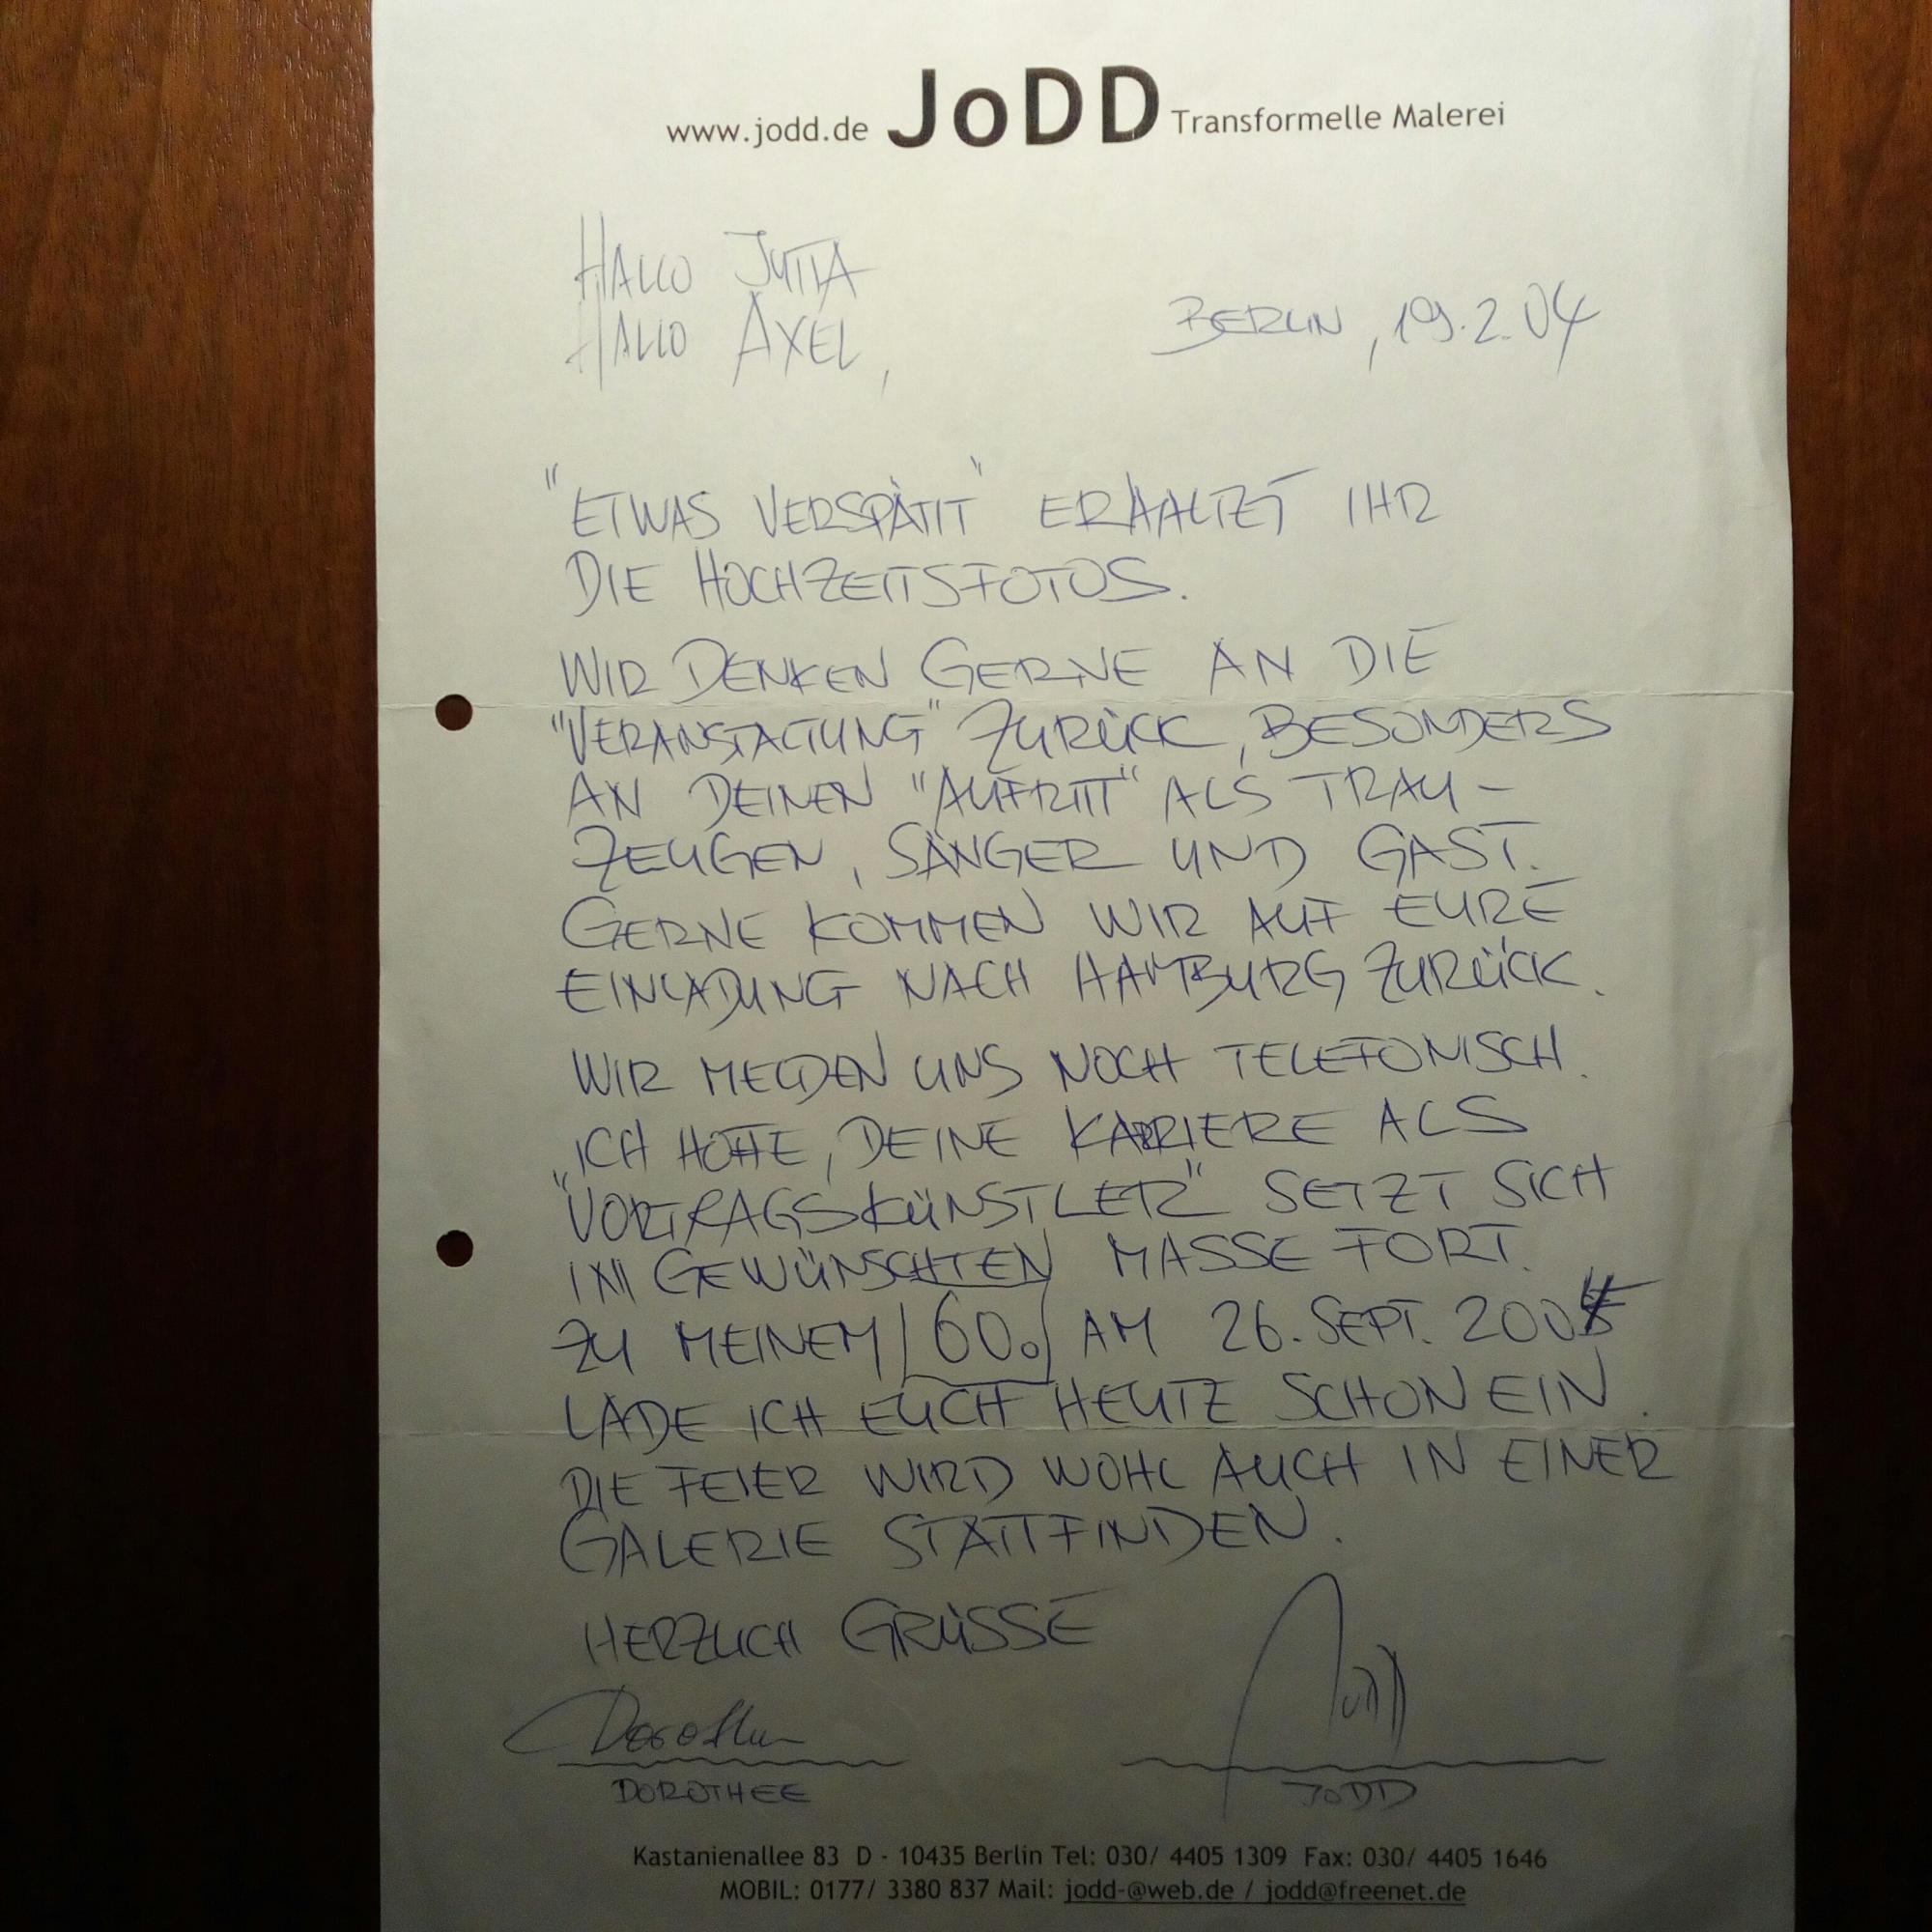 www.jodd.de JoDD Transformelle Malerei
HALLO JUTTA
HALLO AXEL,
BERLIN, 19.2.04
"ETWAS VERSPÄTET" ERHALTET IHR
DIE HOCHZEITSFOTOS.
WIR DENKEN GERNE AN DIE
"VERANSTALTUNG" ZURÜCK, BESONDERS
AN DEINEN "AUFTRITT" ALS TRAU-
ZEUGEN, SÄNGER UND GAST.
GERNE KOMMEN WIR AUF EURE
EINLADUNG NACH HAMBURG ZURÜCK.
WIR MELDEN UNS NOCH TELEFONISCH.
ICH HOFFE, DEINE KARRIERE ALS
"VORTRAGSKÜNSTLER" SETZT SICH
IM GEWÜNSCHTEN MASSE FORT.
ZU MEINEM 60. AM 26. SEPT.
LADE ICH EUCH HEUTE SCHON EIN.
DIE FEIER WIRD WOHL AUCH IN EINER
GALERIE STATTFINDEN.
HERZLICH GRÜSSE
Dorothee
Jodd
DOROTHEE
JODD
Kastanienallee 83 D - 10435 Berlin Tel: 030/ 4405 1309 Fax: 030/ 4405 1646
MOBIL: 0177/ 3380 837 Mail: jodd-@web.de / jodd@freenet.de